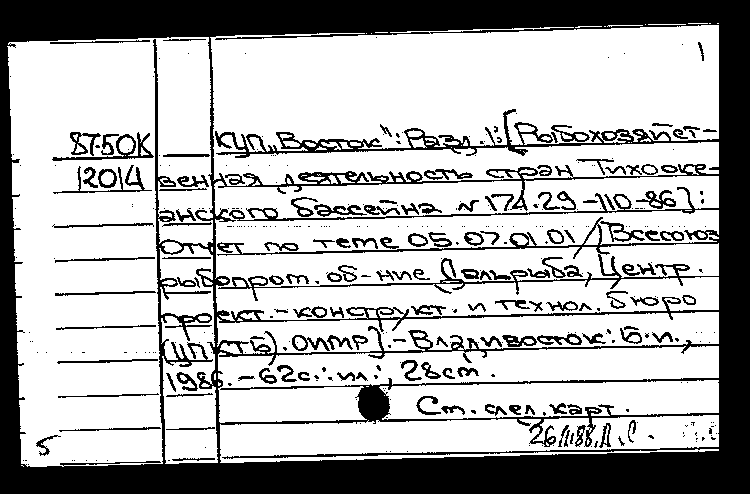 1
87-50К КУП „Восток“: Разд. 1: [Рыбохозяйст-
12014 венная деятельность стран Тихооке-
анского бассейна N 174.29-110-86]:
Отчет по теме 05.07.01.01 / [Всесоюз.
рыбопром. об-ние Дальрыба, Центр.
проект.-конструкт. и технол. бюро
(ЦПКТБ). ОИМР]. - Владивосток: Б.и.,
1986. - 62с.: ил.; 28см.
См. след. карт.
5